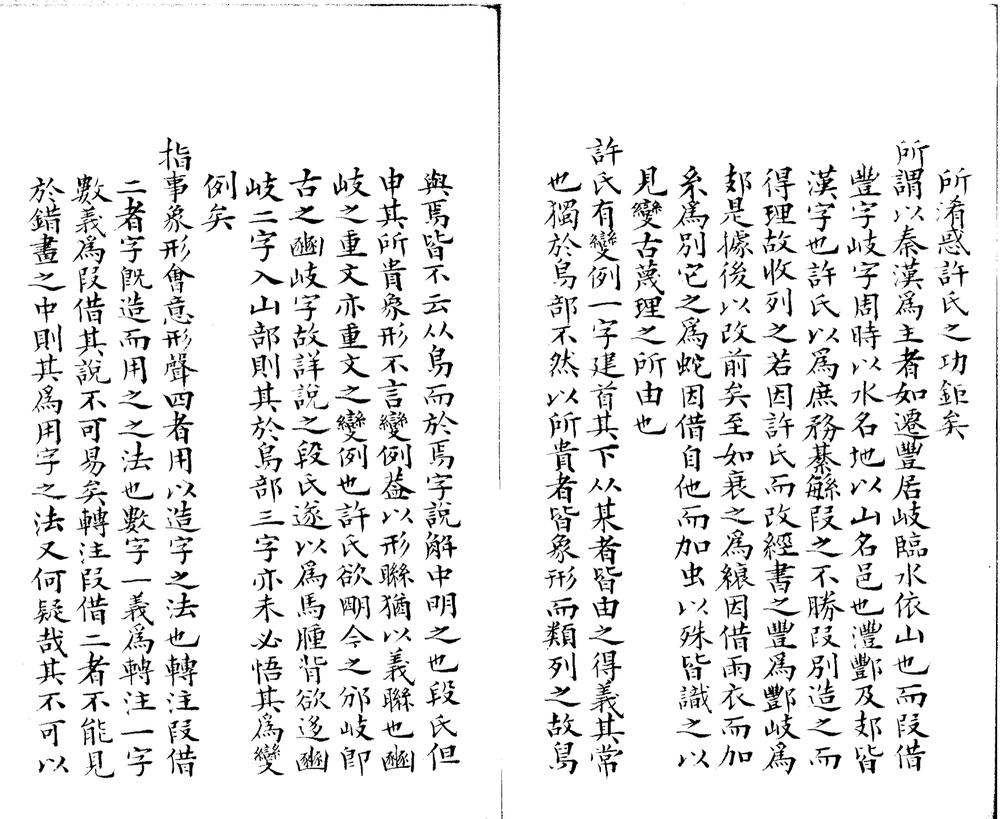 所淆惑許氏之功鉅矣
所謂以秦漢爲主者如遷豐居岐臨水依山也而叚借
豐字岐字周時以水名地以山名邑也灃酆及郂皆
漢字也許氏以爲庶務綦緐叚之不勝叚别造之而
得理故收列之若因許氏而改經書之豐爲酆岐爲
郂是據後以改前矣至如衰之爲縗因借雨衣而加
糸爲別它之爲蛇因借自他而加虫以殊皆識之以
見變古蔑理之所由也
許氏有變例一字建首其下从某者皆由之得義其常
也獨於烏部不然以所貴者皆象形而類列之故舃
與焉皆不云从烏而於焉字說解中明之也段氏但
申其所貴象形不言變例葢以形聯猶以義聯也豳
岐之重文亦重文之變例也許氏欲朙今之邠岐卽
古之豳岐字故詳說之段氏遂以爲馬腫背欲迻豳
岐二字入山部則其於烏部三字亦未必悟其爲變
例矣
指事象形會意形聲四者用以造字之法也轉注叚借
二者字旣造而用之之法也數字一義爲轉注一字
數義爲叚借其說不可易矣轉注叚借二者不能見
於錯畫之中則其爲用字之法又何疑哉其不可以